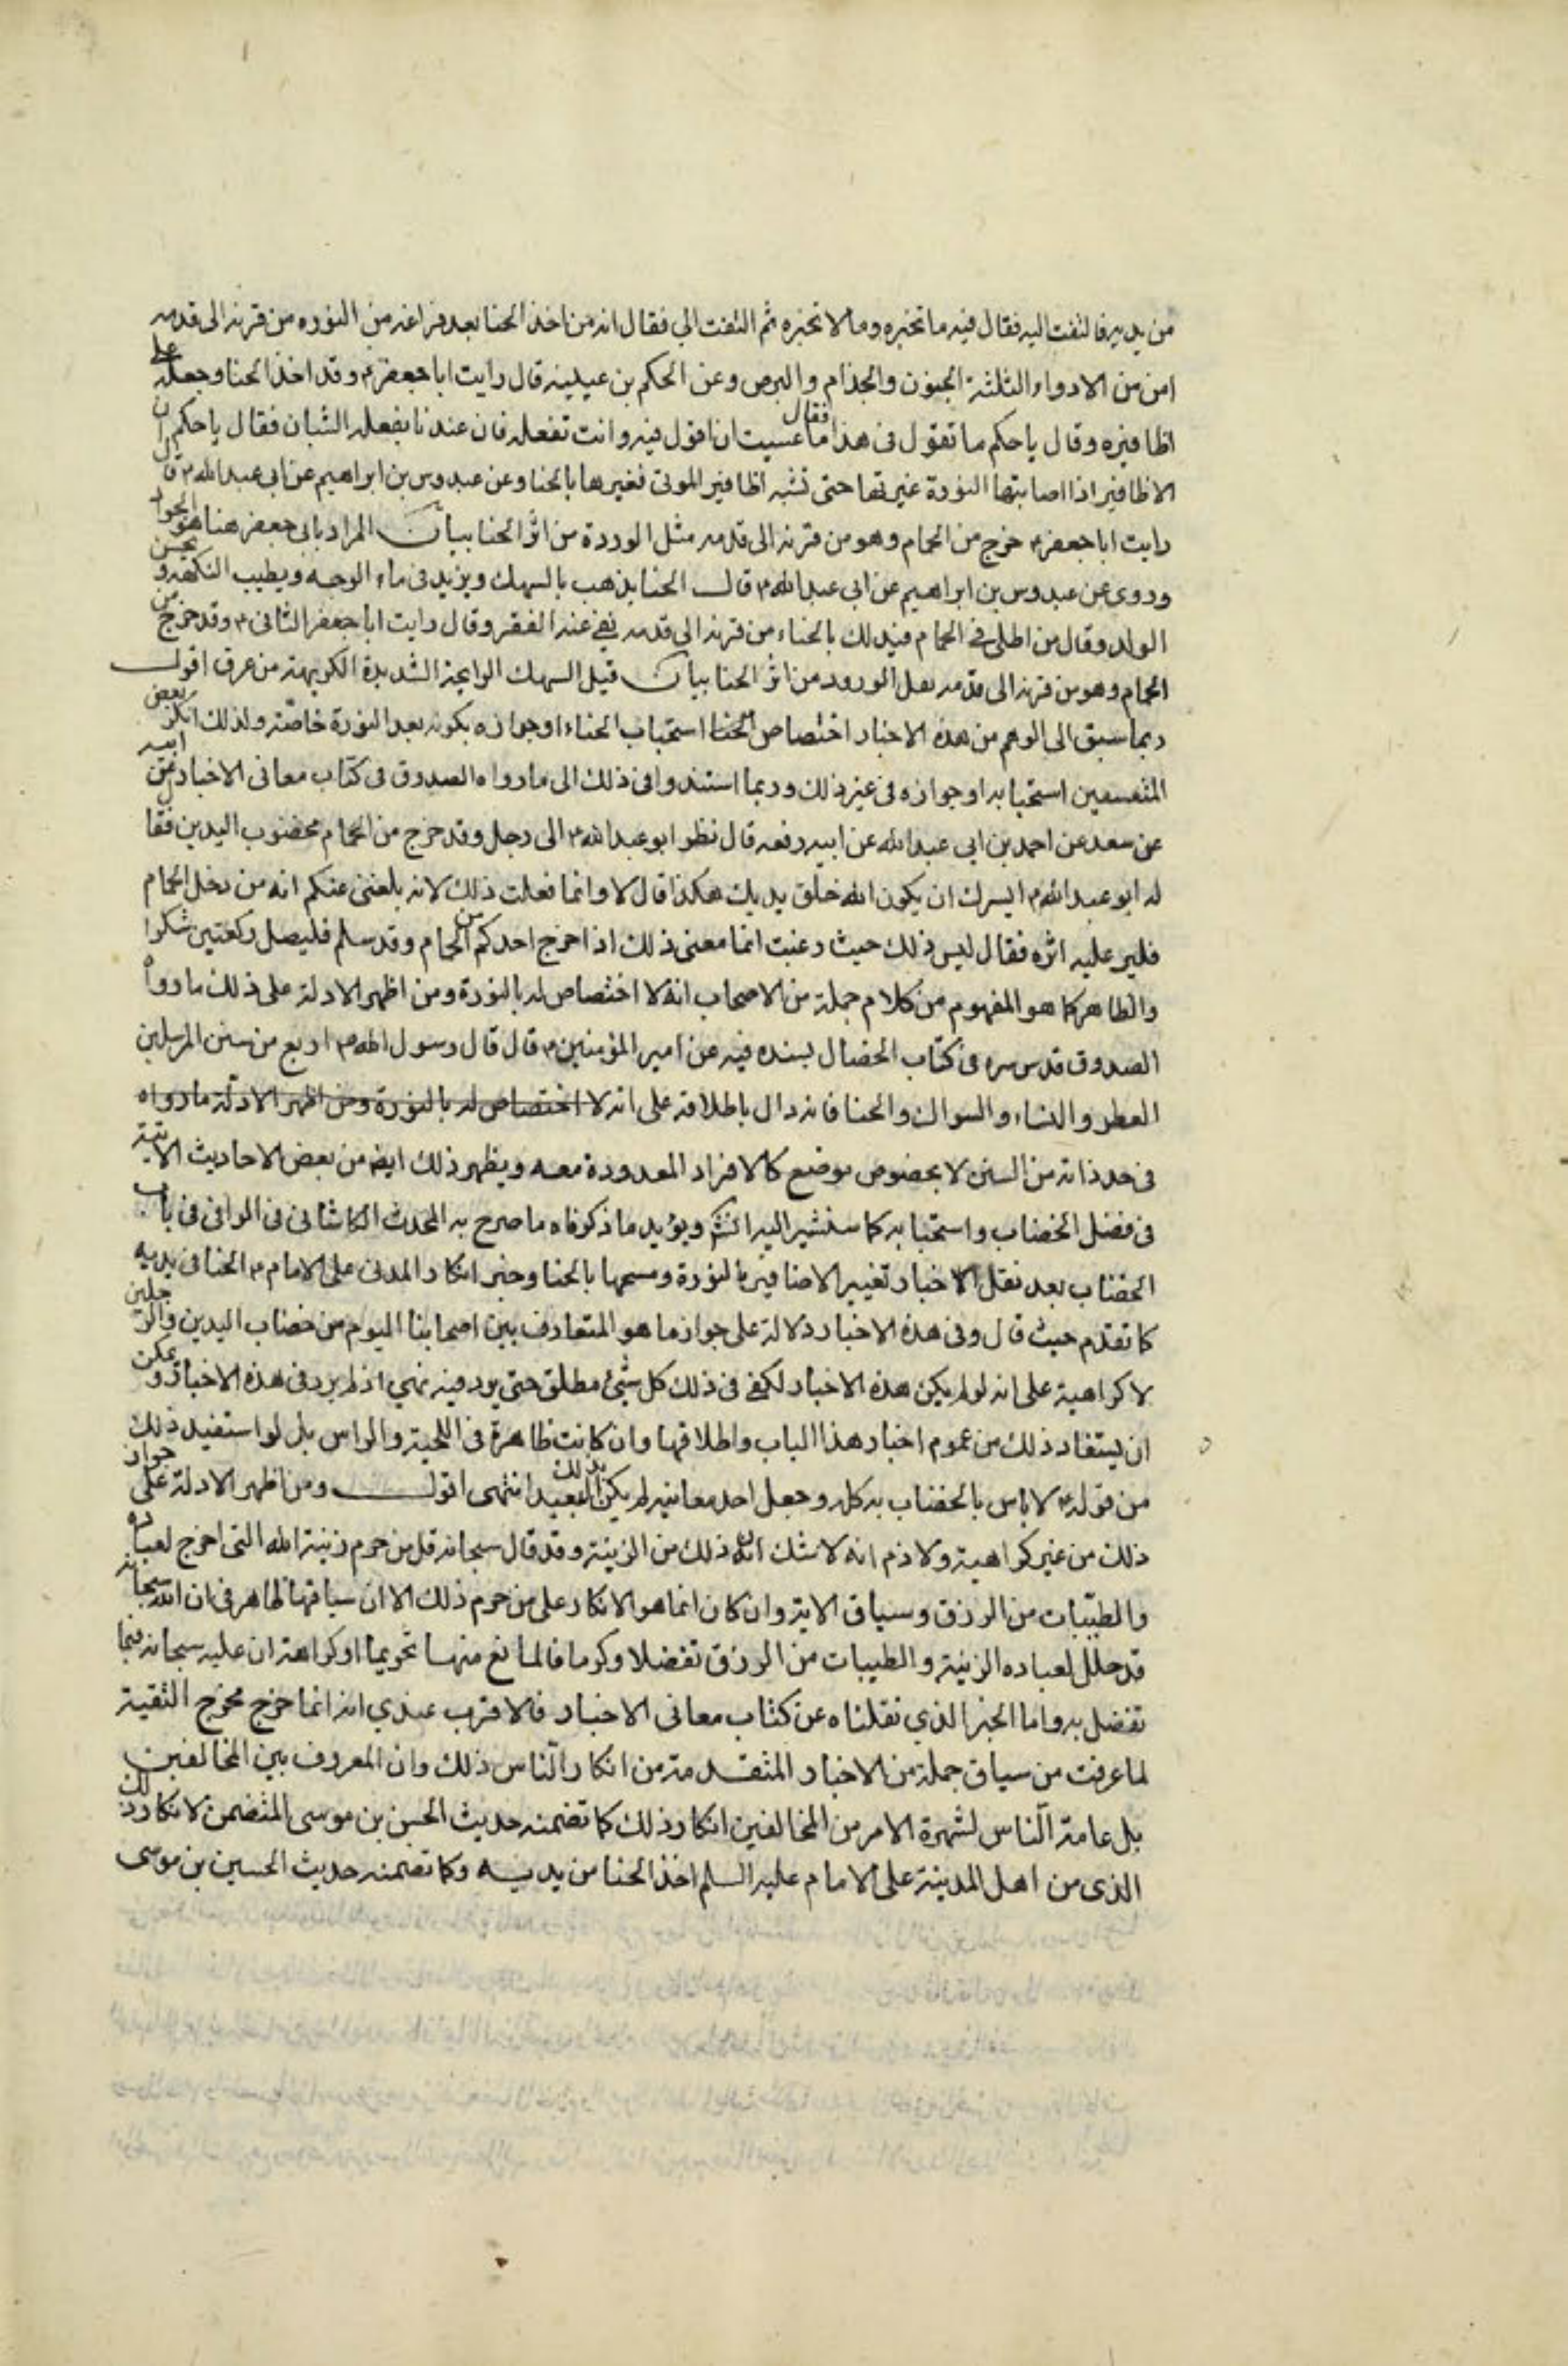 من يديه فالتفت اليه فقال فيه ما تخبره وما لا تخبره ثم التفت الي فقال انه من اخذ الحنا بعد فراغه من النوره من قرنه الى قدمه
امن من الادواء الثلثة الجنون والجذام والبرص وعن الحكم بن عيينه قال رايت ابا جعفر ع وقد اخذ الحنا وجعله على
اظافيره وقال يا حكم ما تقول في هذا فقال ما عسيت ان اقول فيه وانت تفعله فان عندنا يفعله الشبان فقال يا حكم ان
الاظافير اذا اصابتها النورة غيرتها حتى تشبه اظافير الموتى فغيرها بالحنا وعن عبدوس بن ابراهيم عن ابي عبد الله ع قال
رايت ابا جعفر ع خرج من الحمام وهو من قرنه الى قدمه مثل الوردة من اثر الحنا بيان المراد بابي جعفر هنا هو الجواد
وروى عن عبدوس بن ابراهيم عن ابي عبد الله ع قال الحنا يذهب بالسهك ويزيد في ماء الوجه ويطيب النكهة ويحسن
الولد وقال من اطلى في الحمام فتدلك بالحناء من قرنه الى قدمه نفي عنه الفقر وقال رايت ابا جعفر الثاني ع وقد خرج من
الحمام وهو من قرنه الى قدمه مثل الورد من اثر الحنا بيان قيل السهك الرايحة الشديدة الكريهة من عرق اقول
ربما سبق الى الوهم من هذه الاخبار اختصاص استحباب الحناء او جوازه بكونه بعد النورة خاصة ولذلك انكر بعض
المتعسفين استحبابه او جوازه في غير ذلك وربما استندوا في ذلك الى ما رواه الصدوق في كتاب معاني الاخبار عن ابيه
عن سعد عن احمد بن ابي عبد الله عن ابيه رفعه قال نظر ابو عبد الله ع الى رجل وقد خرج من الحمام مخضوب اليدين فقال
له ابو عبد الله ع ايسرك ان يكون الله خلق يديك هكذا قال لا وانما فعلت ذلك لانه بلغني عنكم انه من دخل الحمام
فلير عليه اثره فقال ليس ذلك حيث رغبت انما معنى ذلك اذا اخرج احدكم من الحمام وقد سلم فليصل ركعتين شكرا
والظاهر كما هو المفهوم من كلام جملة من الاصحاب انه لا اختصاص له بالنورة ومن اظهر الادلة على ذلك ما رواه
الصدوق قدس سره في كتاب الخصال بسنده فيه عن امير المؤمنين ع قال قال رسول الله ص اربع من سنن المرسلين
العطر والنساء والسواك والحنا فانه دال باطلاقه على انه لا اختصاص له بالنورة ومن اظهر الادلة ما رواه
في حد ذاته من السنن لا بخصوص موضع كالافراد المعدودة معه ويظهر ذلك ايضا من بعض الاحاديث الاتية
في فضل الخضاب واستحبابه كما سنشير اليه انشاء ويؤيد ما ذكرناه ما صرح به المحدث الكاشاني في الوافي في باب
الخضاب بعد نقل الاخبار تغيير الاضافير بالنورة ومسحها بالحنا وخبر انكار المدني على الامام ع الحنا في يديه
كما تقدم حيث قال وفي هذه الاخبار دلالة على جواز ما هو المتعارف بين اصحابنا اليوم من خضاب اليدين والرجلين
لا كراهية على انه لو لم يكن هذه الاخبار لكفى في ذلك كل شئ مطلق حتى يرد فيه نهي اذ لم يرد في هذه الاخبار ويمكن
ان يستفاد ذلك من عموم اخبار هذا الباب واطلاقها وان كانت ظاهرة في اللحية والراس بل لو استفيد ذلك
من قوله ع لا باس بالخضاب به كله وجعل احد معانيه لم يكن بذلك البعيد انتهى اقول ومن اظهر الادلة على جواز
ذلك من غير كراهية ولا ذم انه لا شك ان ذلك من الزينة وقد قال سبحانه قل من حرم زينة الله التي اخرج لعباده
والطيبات من الرزق وسياق الاية وان كان انما هو الانكار على من حرم ذلك الا ان سياقها ظاهر في ان الله سبحانه
قد حلل لعباده الزينة والطيبات من الرزق تفضلا وكرما فالمانع منها تحريما او كراهة ان عليه سبحانه فيما
تفضل به واما الخبر الذي نقلناه عن كتاب معاني الاخبار فالاقرب عندي انه انما خرج مخرج التقية
لما عرفت من سياق جملة من الاخبار المتقدمة من انكار الناس ذلك وان المعروف بين المخالفين
بل عامة الناس لشهرة الامر من المخالفين انكار ذلك كما تضمنه حديث الحسن بن موسى المتضمن لانكار ذلك
الذي من اهل المدينة على الامام عليه السلم اخذ الحنا من يديه وكما تضمنه حديث الحسين بن موسى